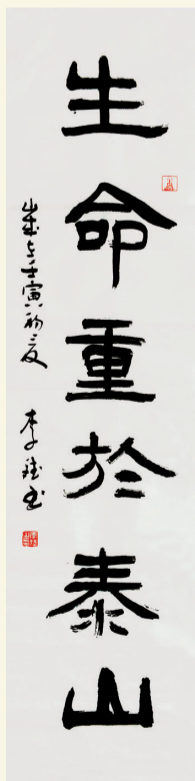 生命重於泰山
歲在壬寅初夏 李